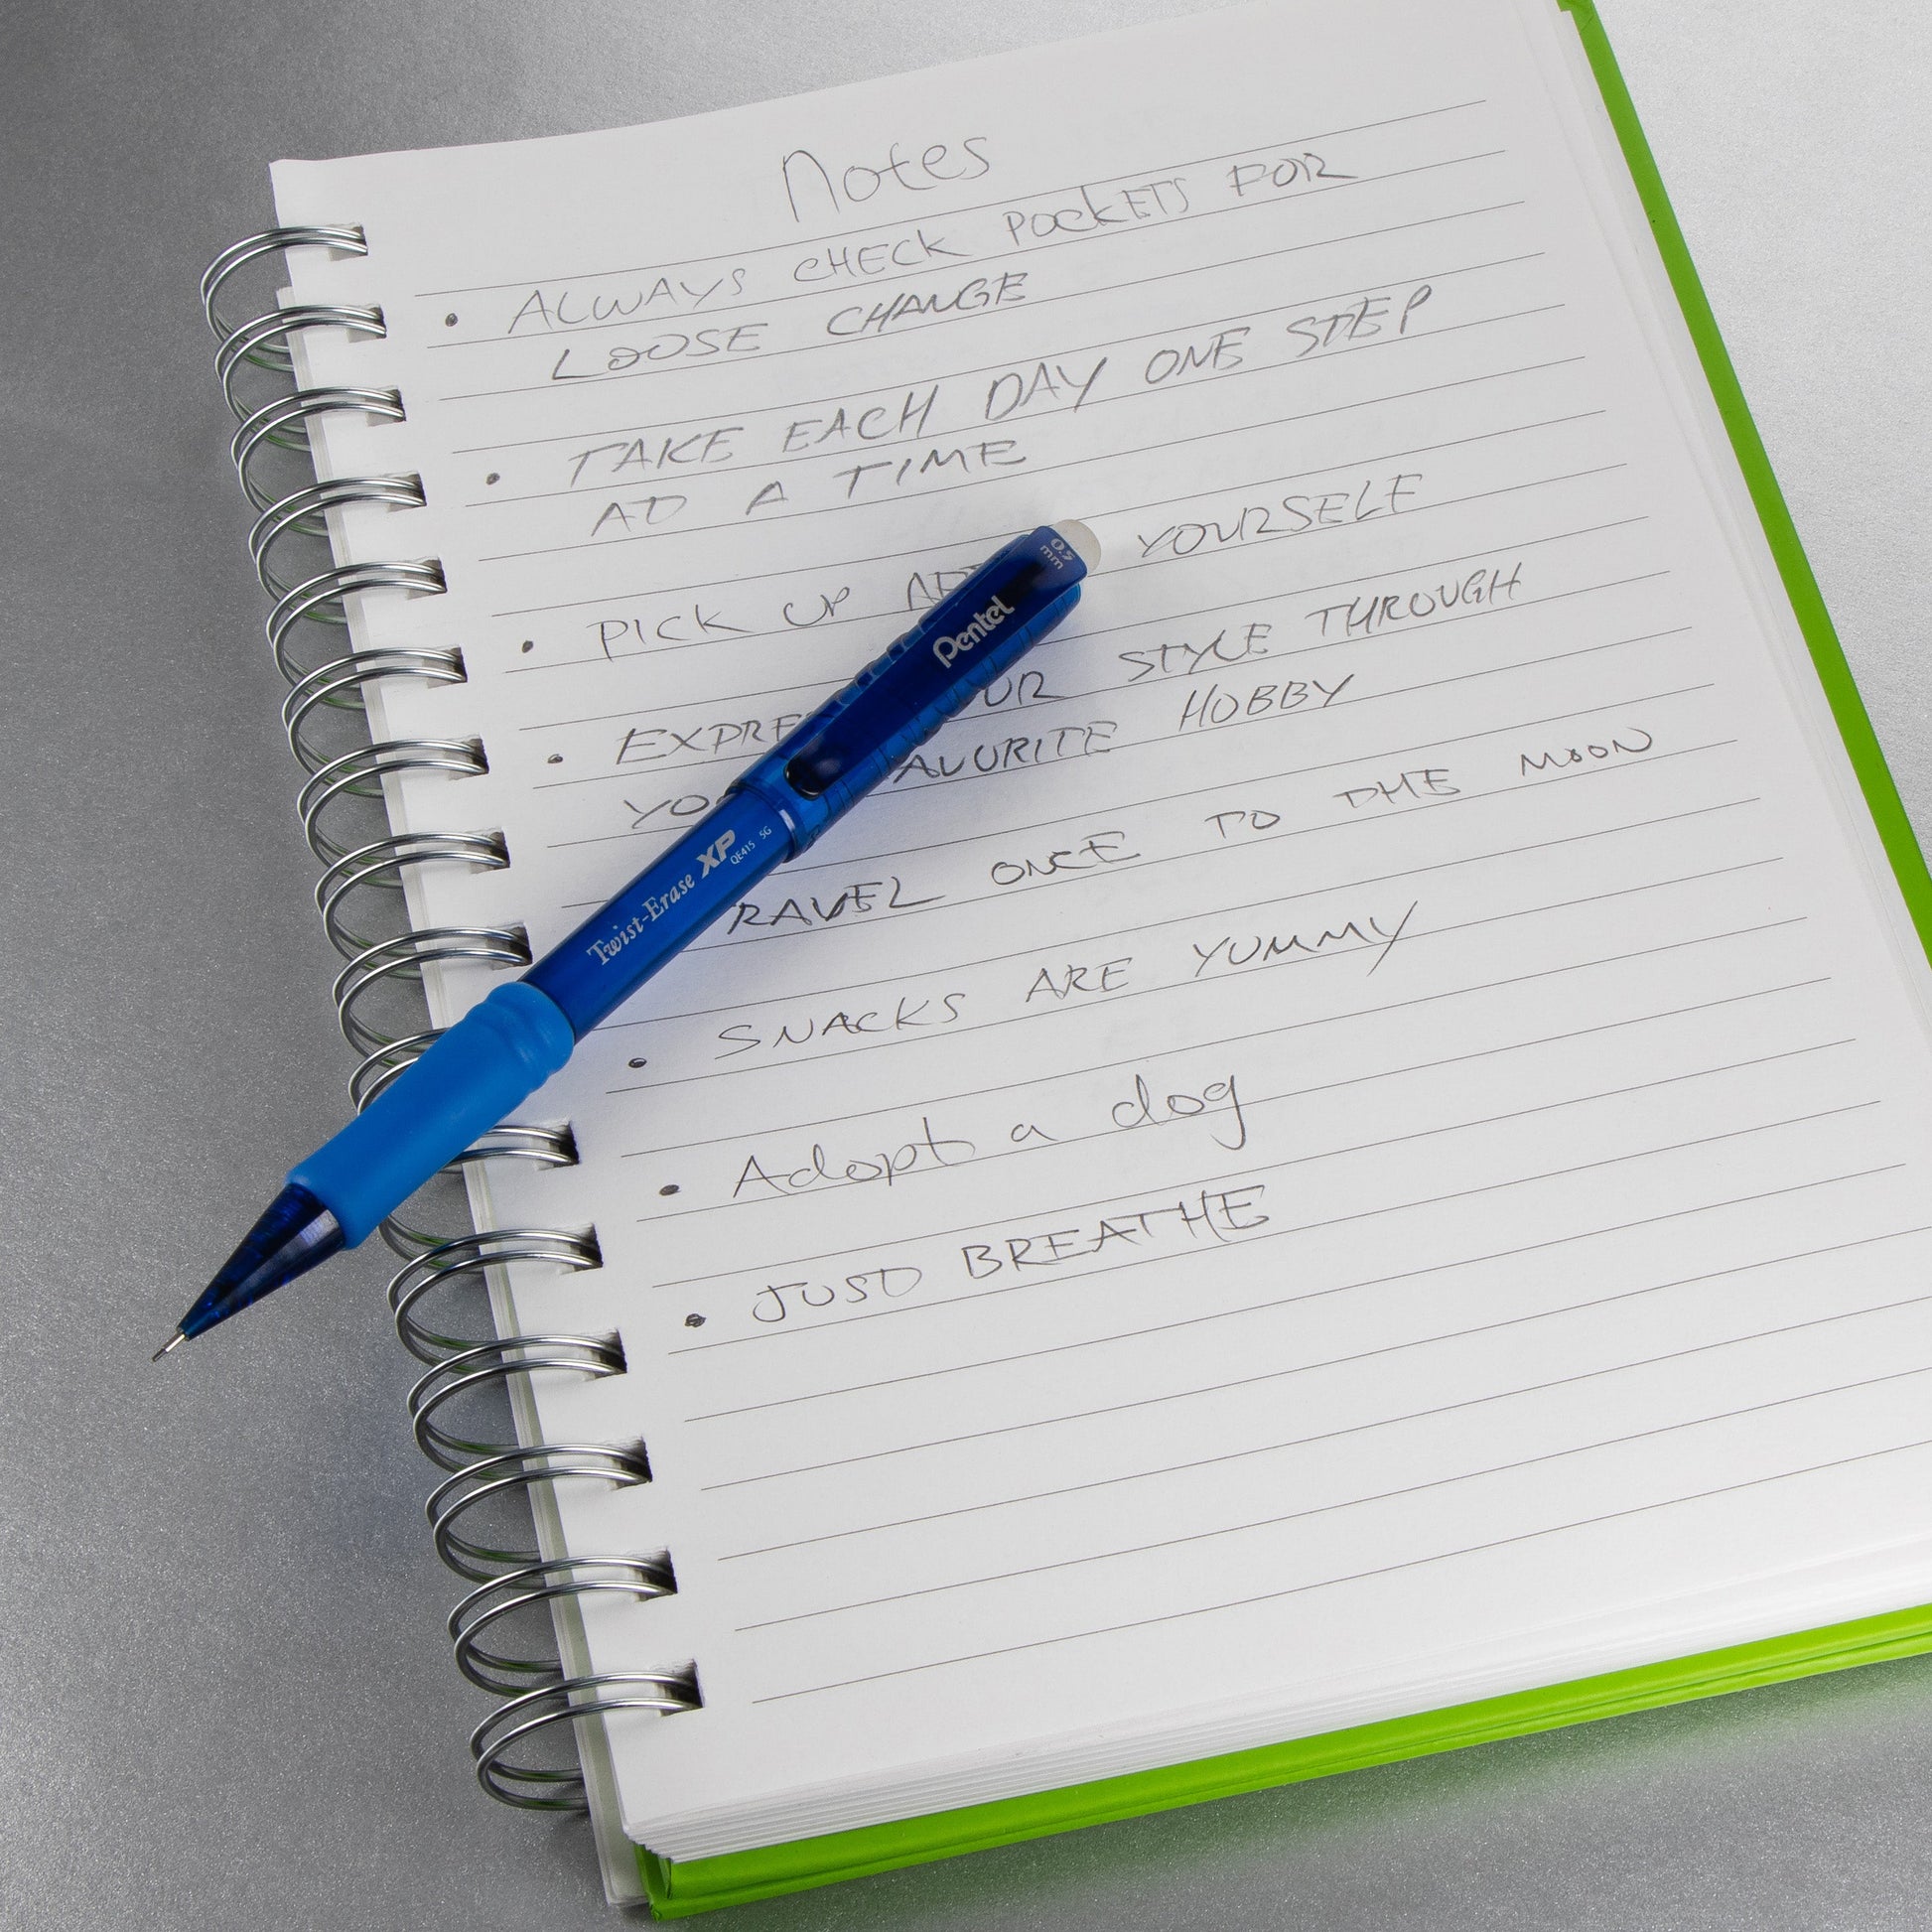 Notes
• ALWAYS CHECK POCKETS FOR
LOOSE CHANGE
• TAKE EACH DAY ONE STEP
AT A TIME
• PICK UP YOURSELF
• STYLE THROUGH
HOBBY
ONCE TO THE MOON
• SNACKS ARE YUMMY
• Adopt a dog
• JUST BREATHE
0.5 mm
Pentel
Twist-Erase XP
QE415 SG